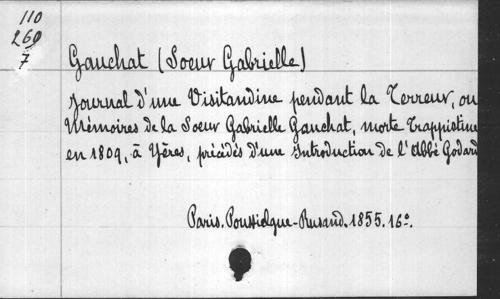 110
260
7
Gauchat (Soeur Gabrielle)
Journal d'une Visitandine pendant la Terreur, ou
Mémoires de la Soeur Gabrielle Gauchat, morte Trappistine
en 1809, à Yères, précédés d'une Introduction de l'Abbé Godard
Paris. Poussielgue-Rusand. 1855. 16º.